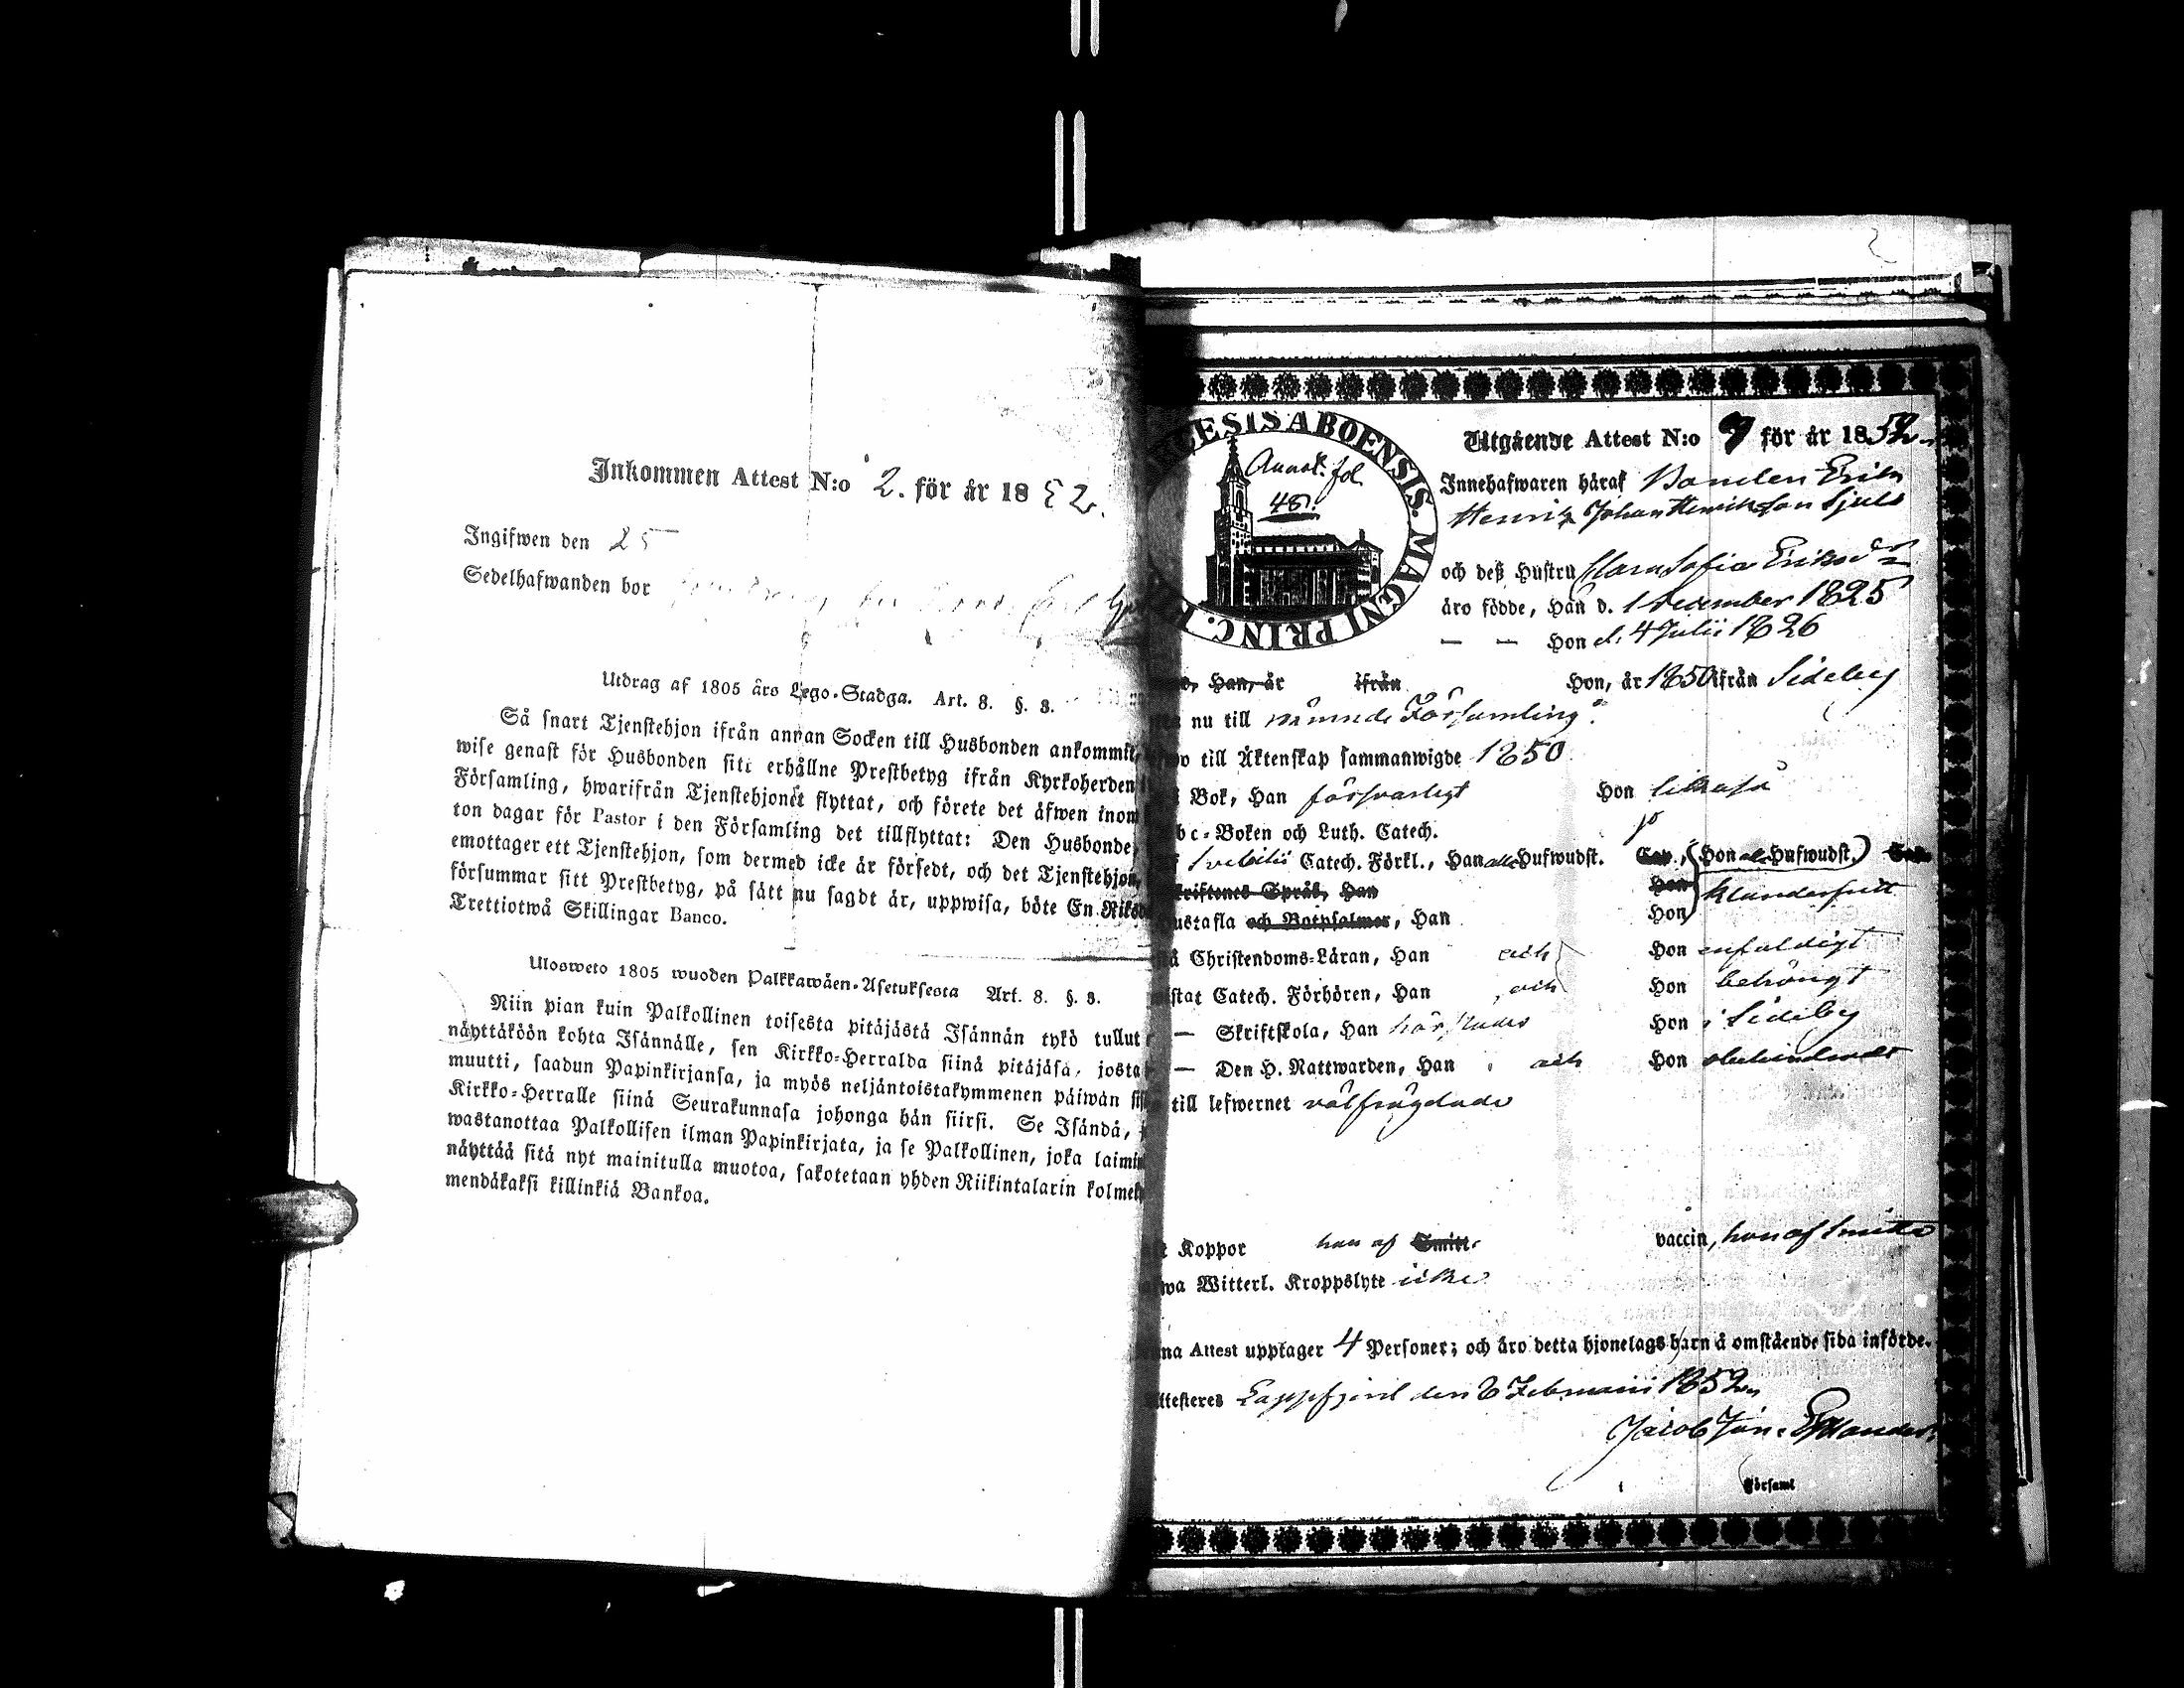 Inkommen Attest N:o 2. för år 1852.
Ingifwen den 25
Sedelhafwanden bor
Utdrag af 1805 års Lego-Stadga. Art. 8. §. 3.
Så snart Tjenstehjon ifrån annan Socken till Husbonden ankommit,
wise genast för Husbonden sitt erhållne Prestbetyg ifrån Kyrkoherden
Församling, hwarifrån Tjenstehjonet flyttat, och förete det äfwen inom
ton dagar för Pastor i den Församling det tillflyttat: Den Husbonde,
emottager ett Tjenstehjon, som dermed icke är försedt, och det Tjenstehjon,
försummar sitt Prestbetyg, på sätt nu sagdt är, uppwisa, böte En Riksd
Trettiotwå Skillingar Banco.
Ulosweto 1805 wuoden Palkkawäen-Asetuksesta Art. 8. §. 3.
Niin pian kuin Palkollinen toisesta pitäjästä Isännän tykö tullut
näyttäköön kohta Isännälle, sen Kirkko-Herralda siinä pitäjäsä, josta
muutti, saadun Papinkirjansa, ja myös neljäntoistakymmenen päiwän sis
Kirkko-Herralle siinä Seurakunnasa johonga hän siirsi. Se Isändä,
wastanottaa Palkollisen ilman Papinkirjata, ja se Palkollinen, joka laimin
näyttää sitä nyt mainitulla muotoa, sakotetaan yhden Riikintalarin kolmek
mendäkaksi killinkiä Bankoa.
ESIS ABOENSIS. MAGNI PRINC.
fol
481.
Utgående Attest N:o 9 för år 1852
Innehafwaren häraf Bonden Erik
Henrik Johan Henriksson Sjuls
och deß Hustru Clara Sofia Eriksdr
äro födde, Han d. 1 December 1825
— — Hon d. 4 Julii 1826
Han, år ifrån Hon, år 1850 ifrån Sideby
nu till nämnde Församling.
till Äktenskap sammanwigde 1850.
Bok, Han försvarligt Hon likaså
bc-Boken och Luth. Catech.
Svebilii Catech. Förkl., Han alla Hufwudst. Cap., (Hon Hufwudst.)
kriftenes Språk, Han Hon klanderfritt
ustafla och Botpsalmer, Han Hon
å Christendoms-Läran, Han och Hon enfaldigt
istat Catech. Förhören, Han och Hon behörigt
— Skriftskola, Han härstädes Hon i Sideby
— Den H. Nattwarden, Han och Hon obehindrade
till lefwernet välfrägdade
Koppor han af Smitt. vaccin, hon af smitta
wa Witterl. Kroppslyte icke
na Attest upptager 4 Personer; och äro detta hjonelags barn å omstående sida införde.
ttesteres Lappfjerd den 8 Februarii 1852
Jacob Joh.
Församl